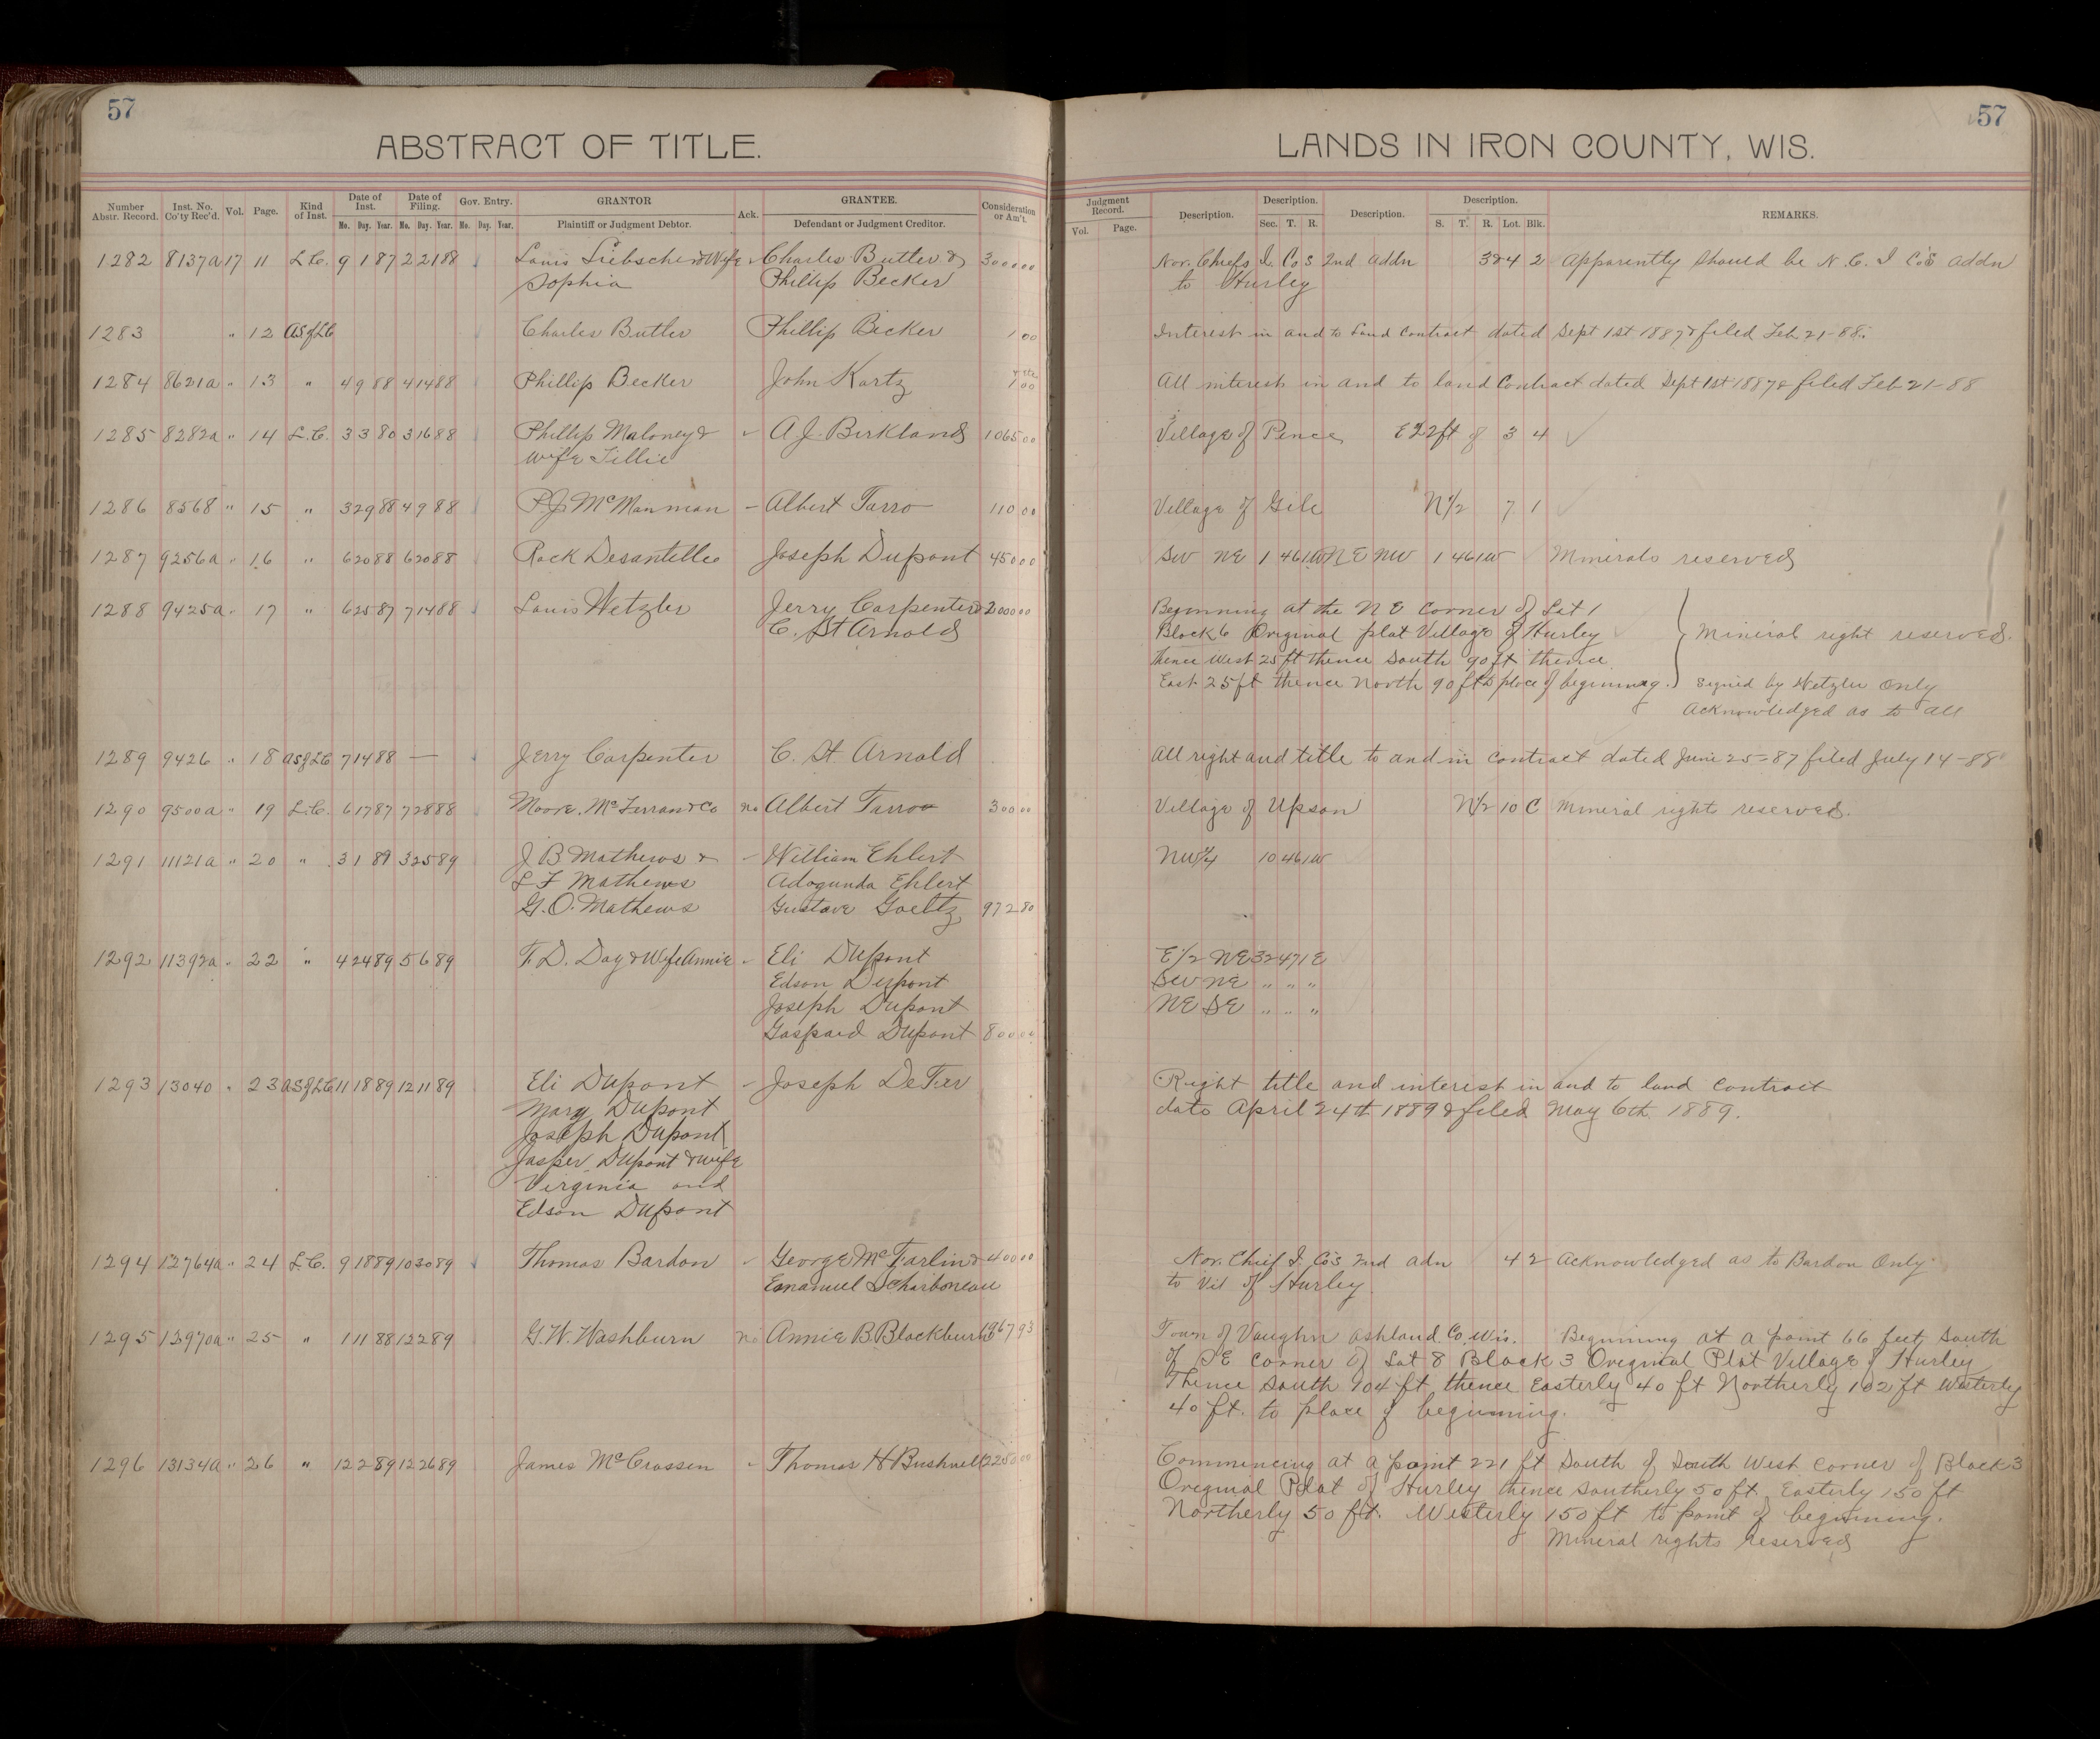 57
ABSTRACT OF TITLE.
Number Abstr. Record. Inst. No. Co'ty Rec'd. Vol. Page. Kind of Inst. Date of Inst. Date of Filing. Gov. Entry. GRANTOR Ack. GRANTEE. Consideration or Am't.
Mo. Day. Year. Mo. Day. Year. Mo. Day. Year. Plaintiff or Judgment Debtor. Defendant or Judgment Creditor.
1282 8137a 17 11 L.C. 9 1 87 2 21 88 Louis Liebscher & Wife Charles Butler & 3000 00
Sophia Phillip Becker
1283 " 12 AS of LC Charles Butler Phillip Becker 1 00
1284 8621a " 13 " 4 9 88 4 14 88 Phillip Becker John Kartz 1 00
1285 8282a " 14 L.C. 3 3 80 3 16 88 Phillip Maloney & A J. Birkland 1065 00
Wife Tillie
1286 8568 " 15 " 3 29 88 4 9 88 P.J. McManman Albert Tarro 110 00
1287 9256a " 16 " 6 20 88 6 20 88 Rock Desantelle Joseph Dupont 450 00
1288 9425a " 17 " 6 25 87 7 14 88 Louis Wetzler Jerry Carpenter & 2000 00
C. St Arnold
1289 9426 " 18 AS of LC 7 14 88 — Jerry Carpenter C. St. Arnold
1290 9500a " 19 L.C. 6 17 87 7 28 88 Moore, McFerran & Co no Albert Tarro 300 00
1291 11121a " 20 " 3 1 89 3 25 89 J B Mathews & William Ehlert
L F Mathews Adogunda Ehlert
G. O. Mathews Gustave Goeltz 972 80
1292 11392a " 22 " 4 24 89 5 6 89 F. D. Day & Wife Annie Eli Dupont
Edson Dupont
Joseph Dupont
Gaspard Dupont 800 00
1293 13040 " 23 AS of LC 11 18 89 12 11 89 Eli Dupont Joseph DeFer
Mary Dupont
Joseph Dupont
Jasper Dupont & wife
Virginia and
Edson Dupont
1294 12764a " 24 L.C. 9 18 89 10 30 89 Thomas Bardon George McFarlin & 400 00
Emanuel Scharboneau
1295 12970a " 25 " 1 11 88 12 2 89 G. W. Washburn no Annie B. Blackburn 1967 93
1296 13134a " 26 " 12 2 89 12 26 89 James McCrossen Thomas H Bushnell 2250 00
57
LANDS IN IRON COUNTY, WIS.
Judgment Record. Description. Description. Description. Description. REMARKS.
Vol. Page. Sec. T. R. S. T. R. Lot. Blk.
Nor. Chiefs I. Co's 2nd addn 3 & 4 2 Apparently should be N. C. I Co's addn
to Hurley
Interest in and to Land Contract dated Sept 1st 1887 & filed Feb 21-88.
All interest in and to land Contract dated Sept 1st 1887 & filed Feb 21-88
Village of Pence E 22 ft of 3 4
Village of Gile N 1/2 7 1
SW NE 1 46 1W NE NW 1 46 1W Minerals reserved
Beginning at the NE Corner of Lot 1
Block 6 Original plat Village of Hurley Mineral right reserved.
thence West 25 ft thence South 90 ft thence
East 25 ft thence North 90 ft to place of beginning. Signed by Wetzler Only
Acknowledged as to all
All right and title to and in contract dated June 25-87 filed July 14-88
Village of Upson N 1/2 10 C Mineral right reserved.
NW 1/4 10 46 1W
E 1/2 NE 32 47 1E
SW NE " " "
NE SE " " "
Right title and interest in and to land Contract
date April 24th 1889 & filed May 6th 1889.
Nor. Chief I. Co's 2nd adn 4 2 Acknowledged as to Bardon Only
to Vil of Hurley
Town of Vaughn Ashland Co Wis. Beginning at a point 66 feet South
of SE Corner of Lot 8 Block 3 Original Plat Village of Hurley
Thence South 104 ft thence Easterly 40 ft Northerly 102 ft Westerly
40 ft. to place of beginning.
Commencing at a point 221 ft South of South West Corner of Block 3
Original Plat of Hurley thence Southerly 50 ft Easterly 150 ft
Northerly 50 ft. Westerly 150 ft to point of beginning.
Mineral rights reserved